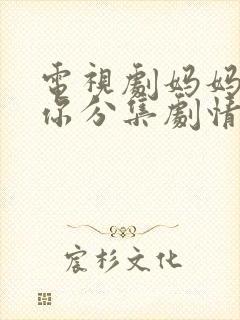 電視劇媽媽
你分集劇情
宸杉文化